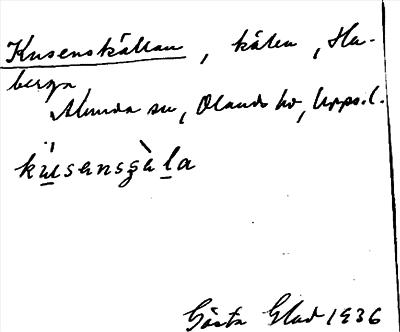 Kusenskällan, källa, Ha-
berga
Alunda sn, Olands hd, Upps. l.
kusensʒȧla
Gösta Glad 1936